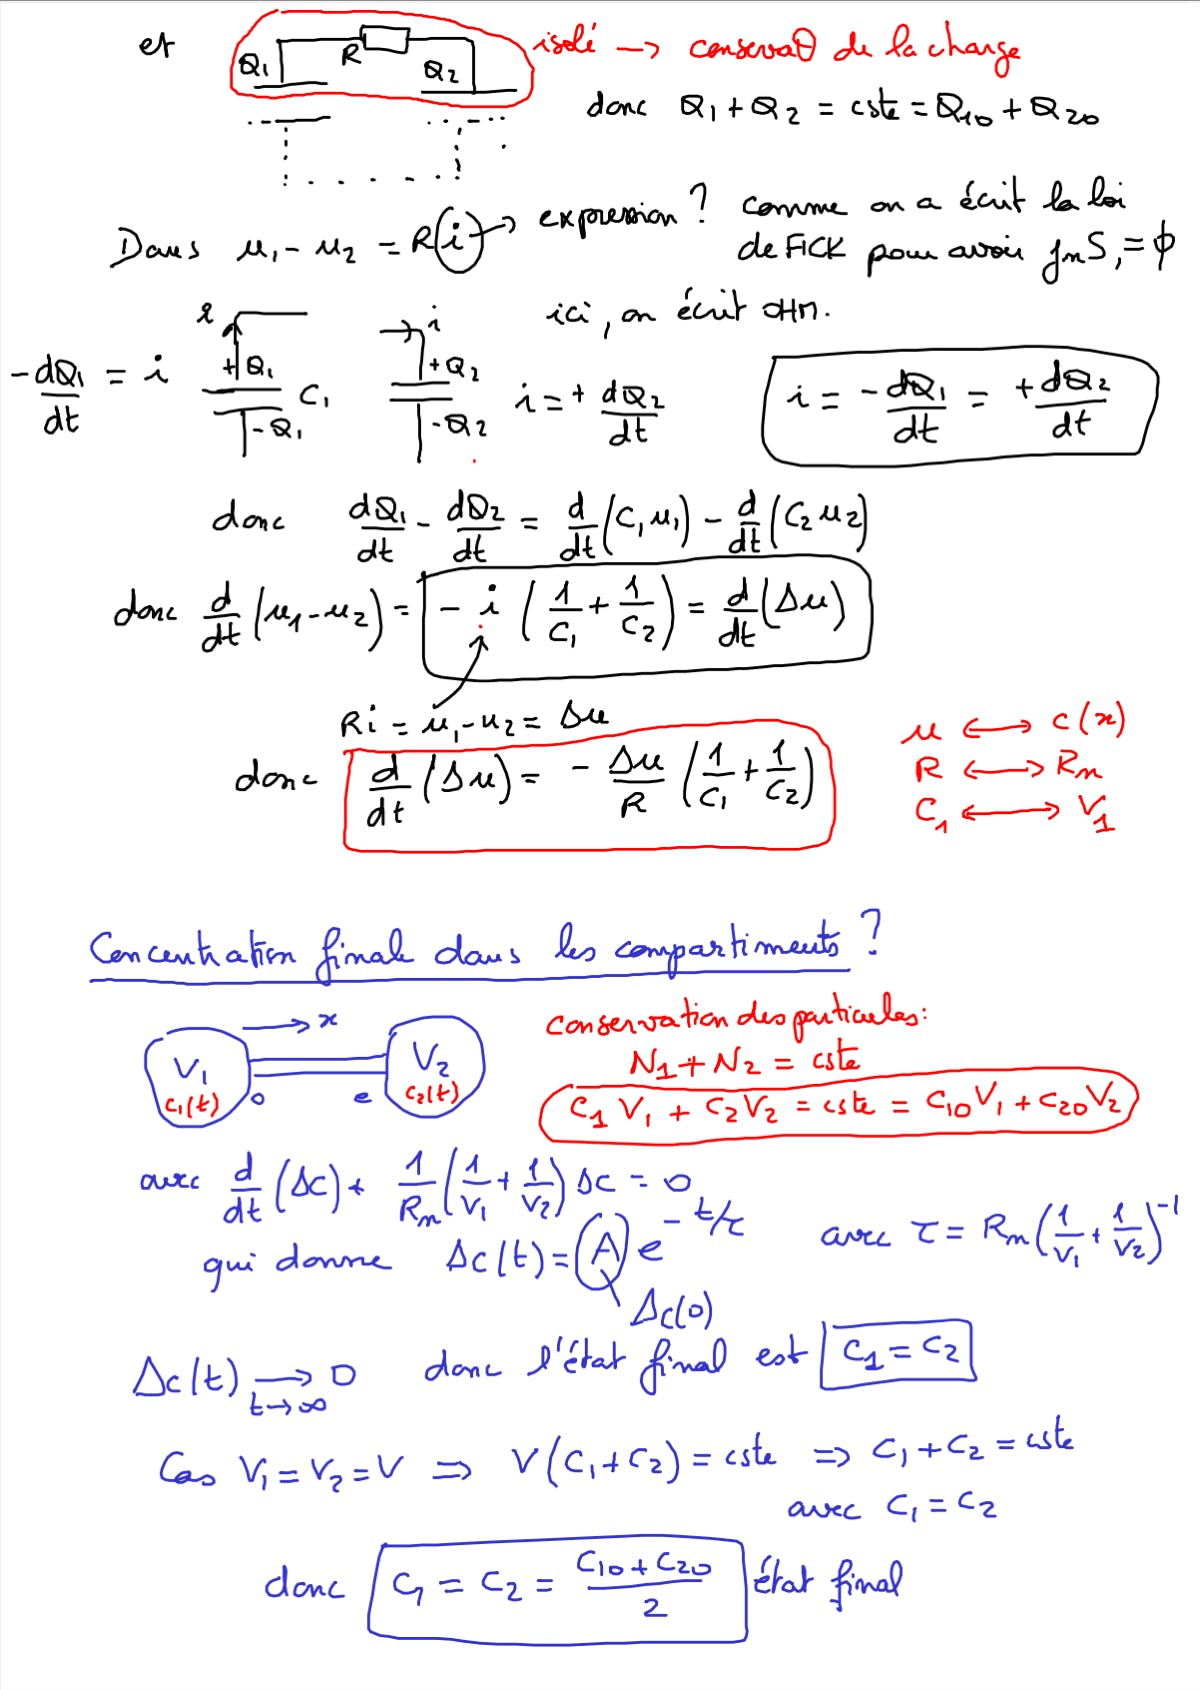 et Q₁ R Q₂ isolé → conservatθ de la charge
donc Q₁ + Q₂ = cste = Q₁₀ + Q₂₀
Dans u₁ - u₂ = R i → expression ? comme on a écrit la loi
de FICK pour avoir jₙS₁ = ϕ
ici, on écrit OHM.
-dQ₁/dt = i
i +Q₁ -Q₁ C₁
i +Q₂ -Q₂
i = + dQ₂/dt
i = -dQ₁/dt = +dQ₂/dt
donc dQ₁/dt - dQ₂/dt = d/dt (C₁u₁) - d/dt (C₂u₂)
donc d/dt (u₁ - u₂) = - i (1/C₁ + 1/C₂) = d/dt (Δu)
Ri = u₁ - u₂ = Δu
donc d/dt (Δu) = - Δu/R (1/C₁ + 1/C₂)
u ↔ c(x)
R ↔ Rₙ
C₁ ↔ V₁
Concentration finale dans les compartiments ?
V₁ c₁(t) o → x e V₂ c₂(t)
conservation des particules :
N₁ + N₂ = cste
C₁V₁ + C₂V₂ = cste = C₁₀V₁ + C₂₀V₂
avec d/dt (Δc) + 1/Rₙ (1/V₁ + 1/V₂) Δc = 0
qui donne Δc(t) = A e^(-t/τ) avec τ = Rₙ (1/V₁ + 1/V₂)⁻¹
Δc(0)
Δc(t) → 0 t→∞ donc l'état final est C₁ = C₂
Cas V₁ = V₂ = V ⇒ V(C₁ + C₂) = cste ⇒ C₁ + C₂ = cste
avec C₁ = C₂
donc C₁ = C₂ = (C₁₀ + C₂₀)/2 état final